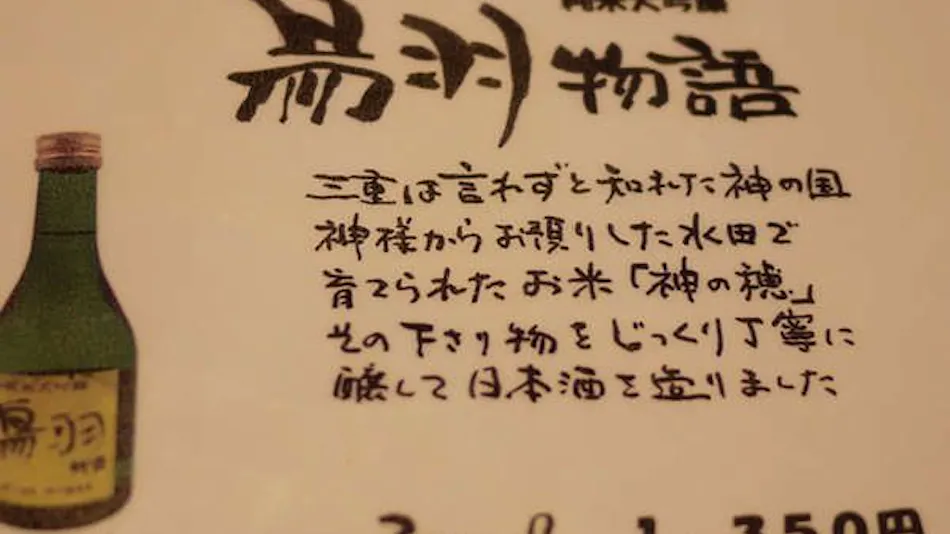 純米大吟醸
鳥羽 物語
三重は言わずと知れた神の国
神様からお預りした水田で
育てられたお米「神の穂」
その下さり物をじっくり丁寧に
醸して日本酒を造りました
鳥羽
1,350円